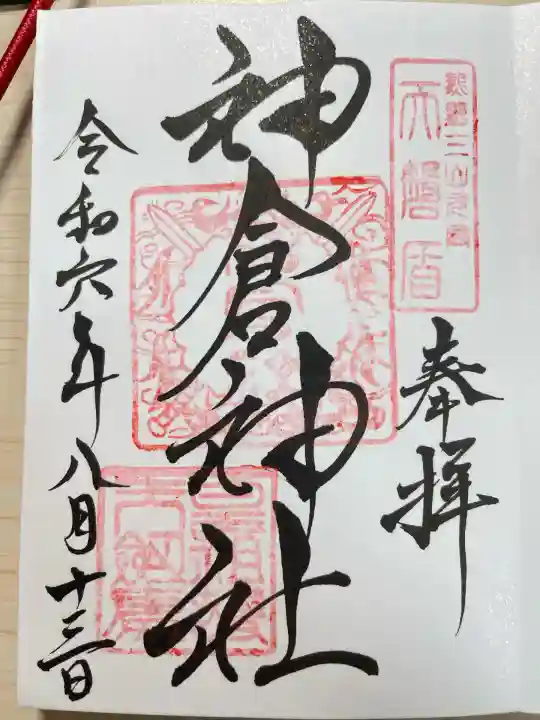 奉拝
神倉神社
令和六年八月十三日
熊野三山元宮
天磐盾